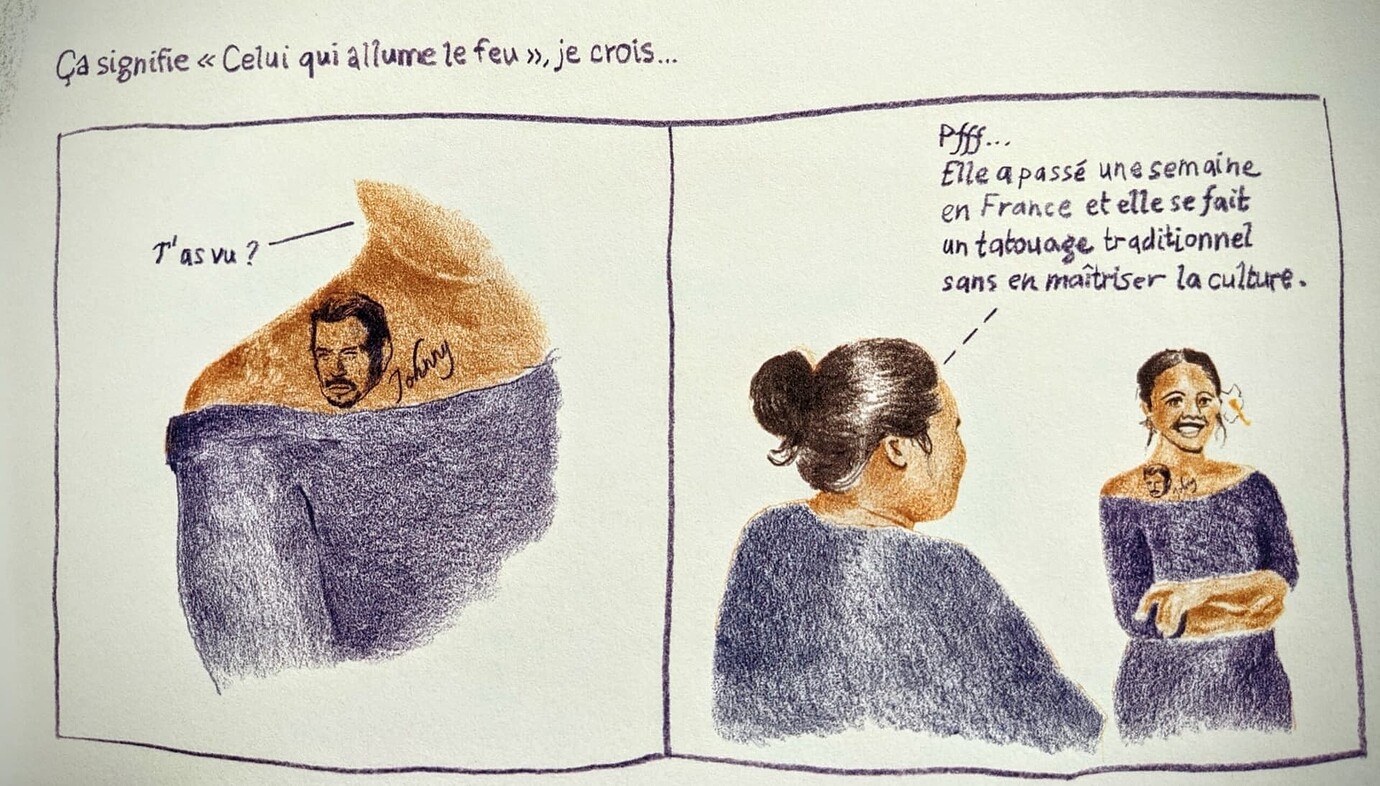 Ça signifie « Celui qui allume le feu », je crois...
T'as vu ?
Johnny
Pfff...
Elle a passé une semaine
en France et elle se fait
un tatouage traditionnel
sans en maîtriser la culture.